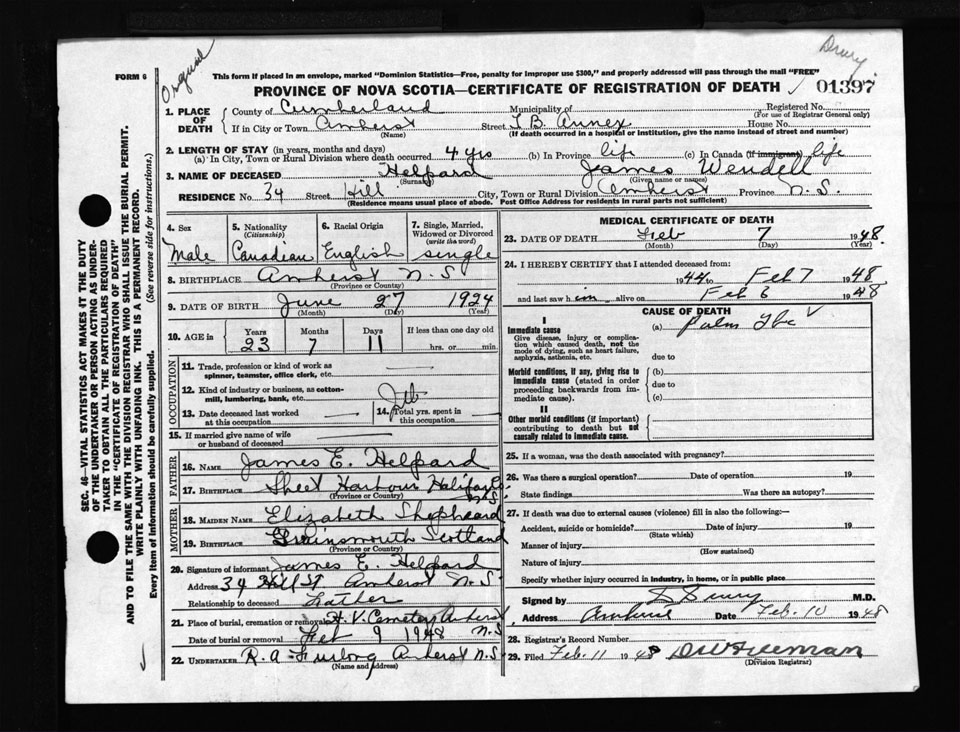 Original
Drury
FORM 6
This form if placed in an envelope, marked "Dominion Statistics—Free, penalty for improper use $300," and properly addressed will pass through the mail "FREE"
PROVINCE OF NOVA SCOTIA—CERTIFICATE OF REGISTRATION OF DEATH ✓ 01397
1. PLACE OF DEATH County of Cumberland Municipality of Registered No.
(For use of Registrar General only)
If in City or Town Amherst Street T B Annex House No.
(Name) (If death occurred in a hospital or institution, give the name instead of street and number)
2. LENGTH OF STAY (in years, months and days)
(a) In City, Town or Rural Division where death occurred 4 yrs (b) In Province life (c) In Canada (if immigrant) life
3. NAME OF DECEASED Helpard James Wendell
(Surname) (Given name or names)
RESIDENCE No. 34 Street Hill City, Town or Rural Division Amherst Province N.S.
(Residence means usual place of abode. Post Office Address for residents in rural parts not sufficient)
4. Sex 5. Nationality (Citizenship) 6. Racial Origin 7. Single, Married, Widowed or Divorced (write the word)
Male Canadian English single
8. BIRTHPLACE Amherst N.S
(Province or Country)
9. DATE OF BIRTH June 27 1924
(Month) (Day) (Year)
10. AGE in Years Months Days If less than one day old
23 7 11 hrs. or min.
OCCUPATION
11. Trade, profession or kind of work as spinner, teamster, office clerk, etc.
12. Kind of industry or business, as cotton-mill, lumbering, bank, etc.
13. Date deceased last worked at this occupation 14. Total yrs. spent in this occupation
15. If married give name of wife or husband of deceased
FATHER
16. NAME James E. Helpard
17. BIRTHPLACE Sheet Harbour Halifax Co N.S.
(Province or Country)
MOTHER
18. MAIDEN NAME Elizabeth Shepheard
19. BIRTHPLACE Grainsmouth Scotland
(Province or Country)
20. Signature of informant James E. Helpard
Address 34 Hill St Amherst N.S
Relationship to deceased Father
21. Place of burial, cremation or removal H.V. Cemetery Amherst
Date of burial or removal Feb 9 1948 N.S
22. UNDERTAKER R. A. Furlong Amherst N.S.
(Name and address)
MEDICAL CERTIFICATE OF DEATH
23. DATE OF DEATH Feb 7 1948.
(Month) (Day) (Year)
24. I HEREBY CERTIFY that I attended deceased from:
1944 to Feb 7 1948
and last saw him alive on Feb 6 1948
CAUSE OF DEATH
I
Immediate cause (a) Pulm Tbc ✓
Give disease, injury or complication which caused death, not the mode of dying, such as heart failure, asphyxia, asthenia, etc. due to
Morbid conditions, if any, giving rise to immediate cause (stated in order proceeding backwards from immediate cause). (b) due to (c)
II
Other morbid conditions (if important) contributing to death but not causally related to immediate cause.
25. If a woman, was the death associated with pregnancy?
26. Was there a surgical operation? Date of operation 19
State findings Was there an autopsy?
27. If death was due to external causes (violence) fill in also the following:—
Accident, suicide or homicide? Date of injury 19
(State which)
Manner of injury
(How sustained)
Nature of injury
Specify whether injury occurred in industry, in home, or in public place
Signed by M.D.
Address Amherst Date Feb. 10 1948
28. Registrar's Record Number
29. Filed Feb. 11 1948 D W Freeman
(Division Registrar)
SEC. 46—VITAL STATISTICS ACT MAKES IT THE DUTY
OF THE UNDERTAKER OR PERSON ACTING AS UNDER-
TAKER TO OBTAIN ALL THE PARTICULARS REQUIRED
IN THE "CERTIFICATE OF REGISTRATION OF DEATH"
AND TO FILE THE SAME WITH THE DIVISION REGISTRAR WHO SHALL ISSUE THE BURIAL PERMIT.
WRITE PLAINLY WITH UNFADING INK. THIS IS A PERMANENT RECORD.
Every item of information should be carefully supplied. (See reverse side for instructions.)